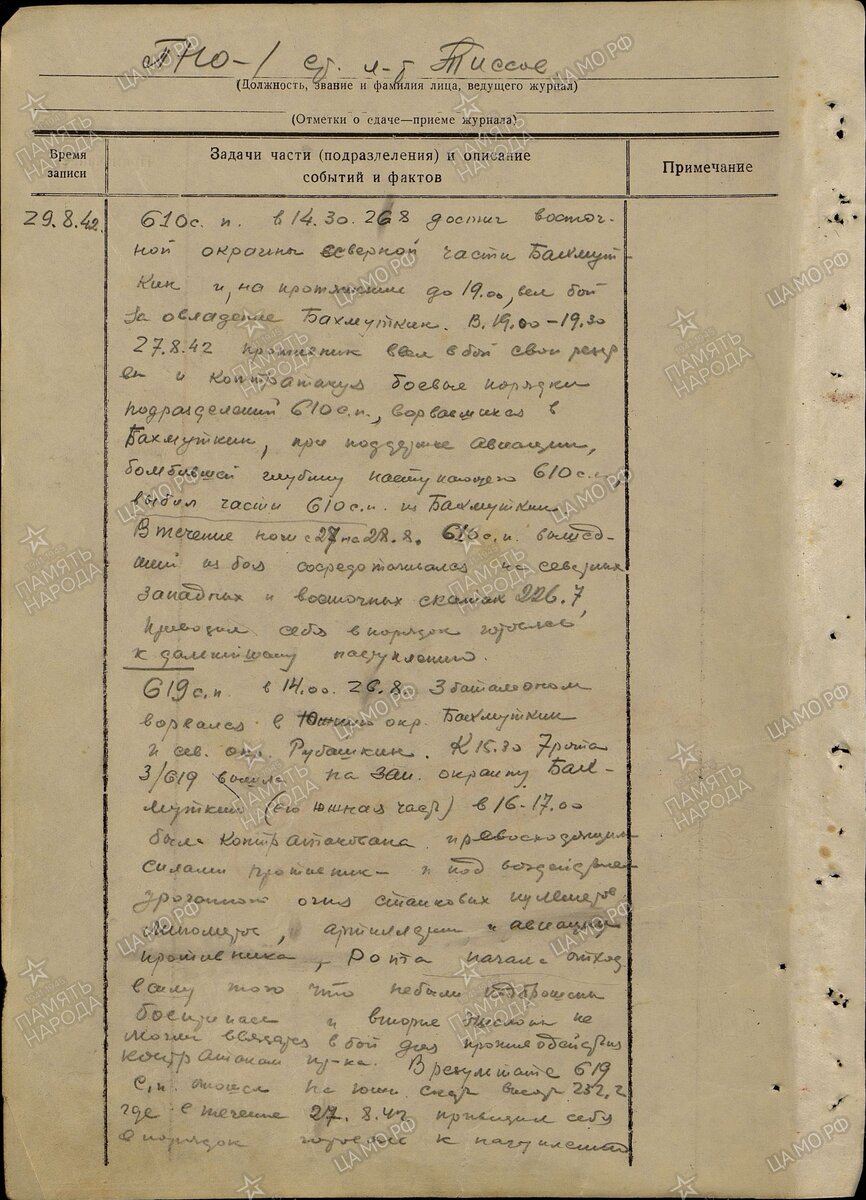 ПНО-1 ст. л-т Тиссов
(Должность, звание и фамилия лица, ведущего журнал)
(Отметки о сдаче—приеме журнала)
Время записи
Задачи части (подразделения) и описание событий и фактов
Примечание
29.8.42.
610 с. п. в 14.30 26.8 достиг восточ-
ной окраины северной части Бахмут-
кин и, на протяжение до 19.00, вел бой
за овладение Бахмуткин. В 19.00-19.30
27.8.42 противник ввел в бой свои резер
вы и контратакуя боевые порядки
подразделений 610 с.п., ворвавшихся в
Бахмуткин, при поддержке авиации,
бомбившей глубину наступающего 610 с.п.,
выбил части 610 с.п. из Бахмуткин.
В течение ночи с 27 на 28.8. 610 с.п. вышед-
ший из боя сосредотачивался на северных
западных и восточных скатах 226.7,
приводил себя в порядок готовясь
к дальнейшему наступлению.
619 с.п. в 14.00. 26.8. 3 батальоном
ворвался в южную окр. Бахмуткин
и сев. окр. Рубашкин. К 15.30 7 рота
3/619 вышла на зап. окраину Бах-
муткин (его южная часть) в 16-17.00
была контратакована превосходящими
силами противник и под воздействием
ураганного огня станковых пулеметов
минометов, артиллерии и авиации
противника, рота начала отход
ввиду того что небыли подброшены
боеприпасы и вторые эшелоны не
могли ввязаться в бой для противодействия
контратакам пр-ка. В результате 619
с.п. отошел на южн. скаты высоты 232.2
где в течение 27.8.42 приводил себя
в порядок готовясь к наступлению
ПАМЯТЬ НАРОДА
ЦАМО.РФ